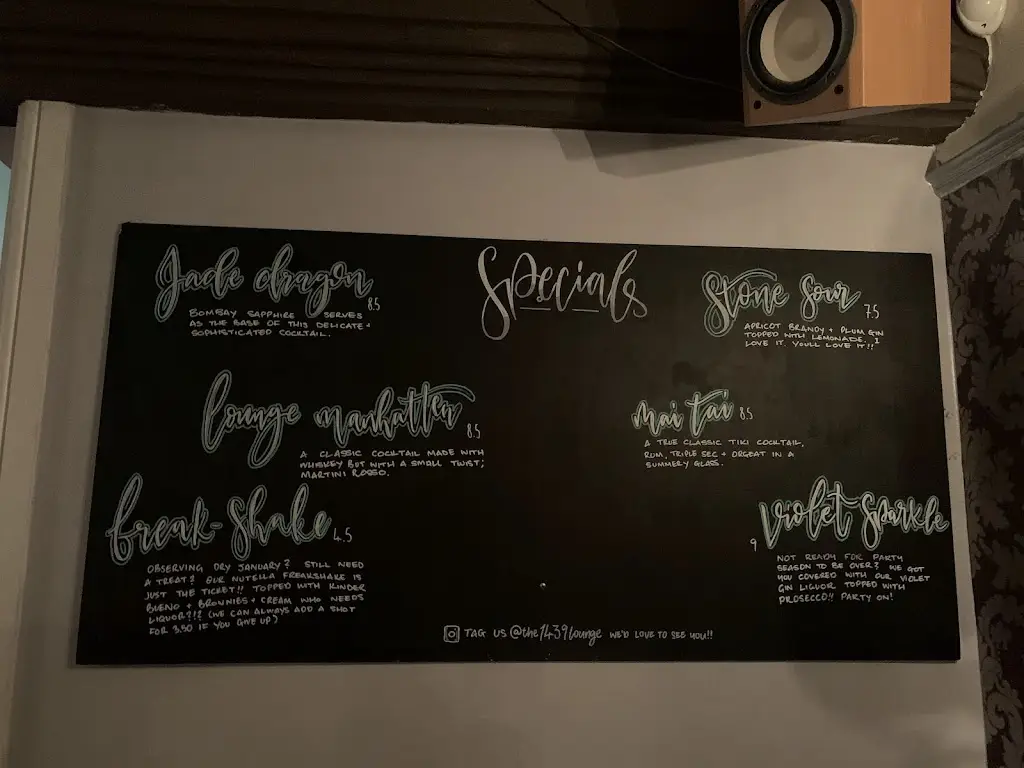 Specials
Jade dragon 8.5
BOMBAY SAPPHIRE SERVES
AS THE BASE OF THIS DELICATE +
SOPHISTICATED COCKTAIL.
Lounge manhatten 8.5
A CLASSIC COCKTAIL MADE WITH
WHISKEY BUT WITH A SMALL TWIST;
MARTINI ROSSO.
freak-shake 4.5
OBSERVING DRY JANUARY? STILL NEED
A TREAT? OUR NUTELLA FREAKSHAKE IS
JUST THE TICKET!! TOPPED WITH KINDER
BUENO + BROWNIES + CREAM WHO NEEDS
LIQUOR?!? (WE CAN ALWAYS ADD A SHOT
FOR 3.50 IF YOU GIVE UP)
Stone Sour 7.5
APRICOT BRANDY + PLUM GIN
TOPPED WITH LEMONADE. I
LOVE IT. YOULL LOVE IT!!
mai tai 8.5
A TRUE CLASSIC TIKI COCKTAIL,
RUM, TRIPLE SEC + ORGEAT IN A
SUMMERY GLASS.
Violet Sparkle
9
NOT READY FOR PARTY
SEASON TO BE OVER? WE GOT
YOU COVERED WITH OUR VIOLET
GIN LIQUOR TOPPED WITH
PROSECCO!! PARTY ON!
TAG US @the1439lounge WE'D LOVE TO SEE YOU!!